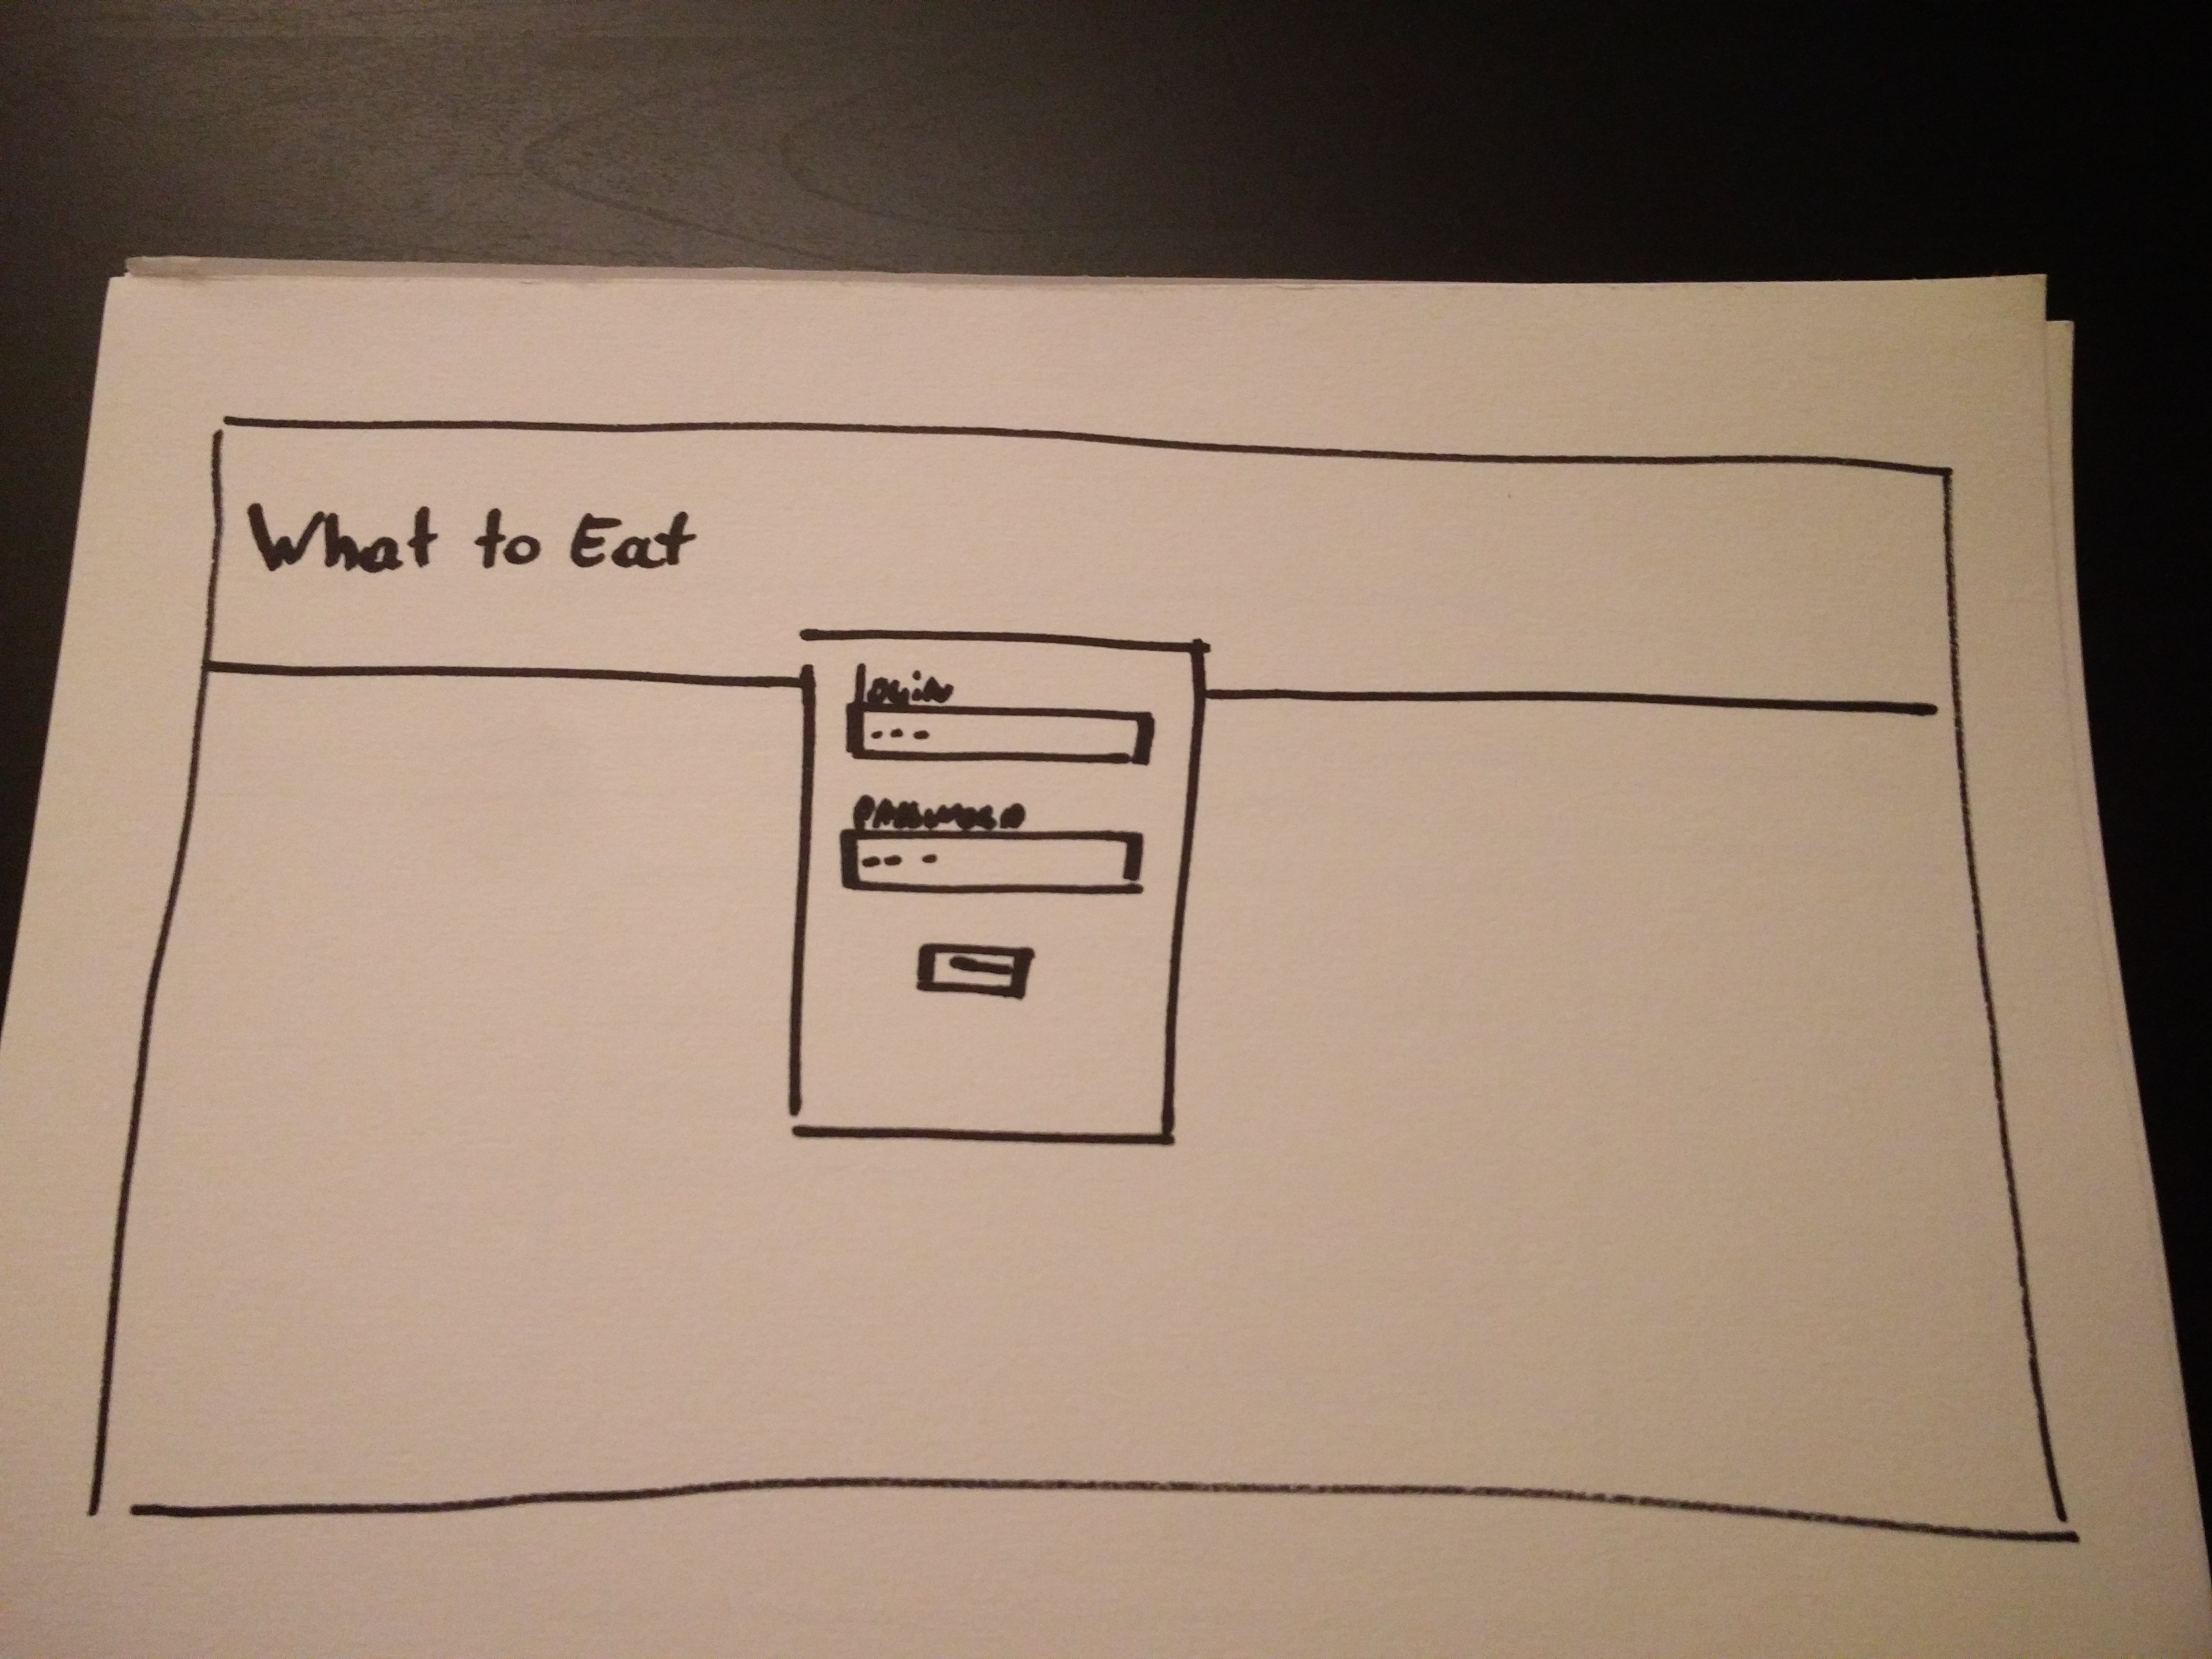 What to Eat
login
password